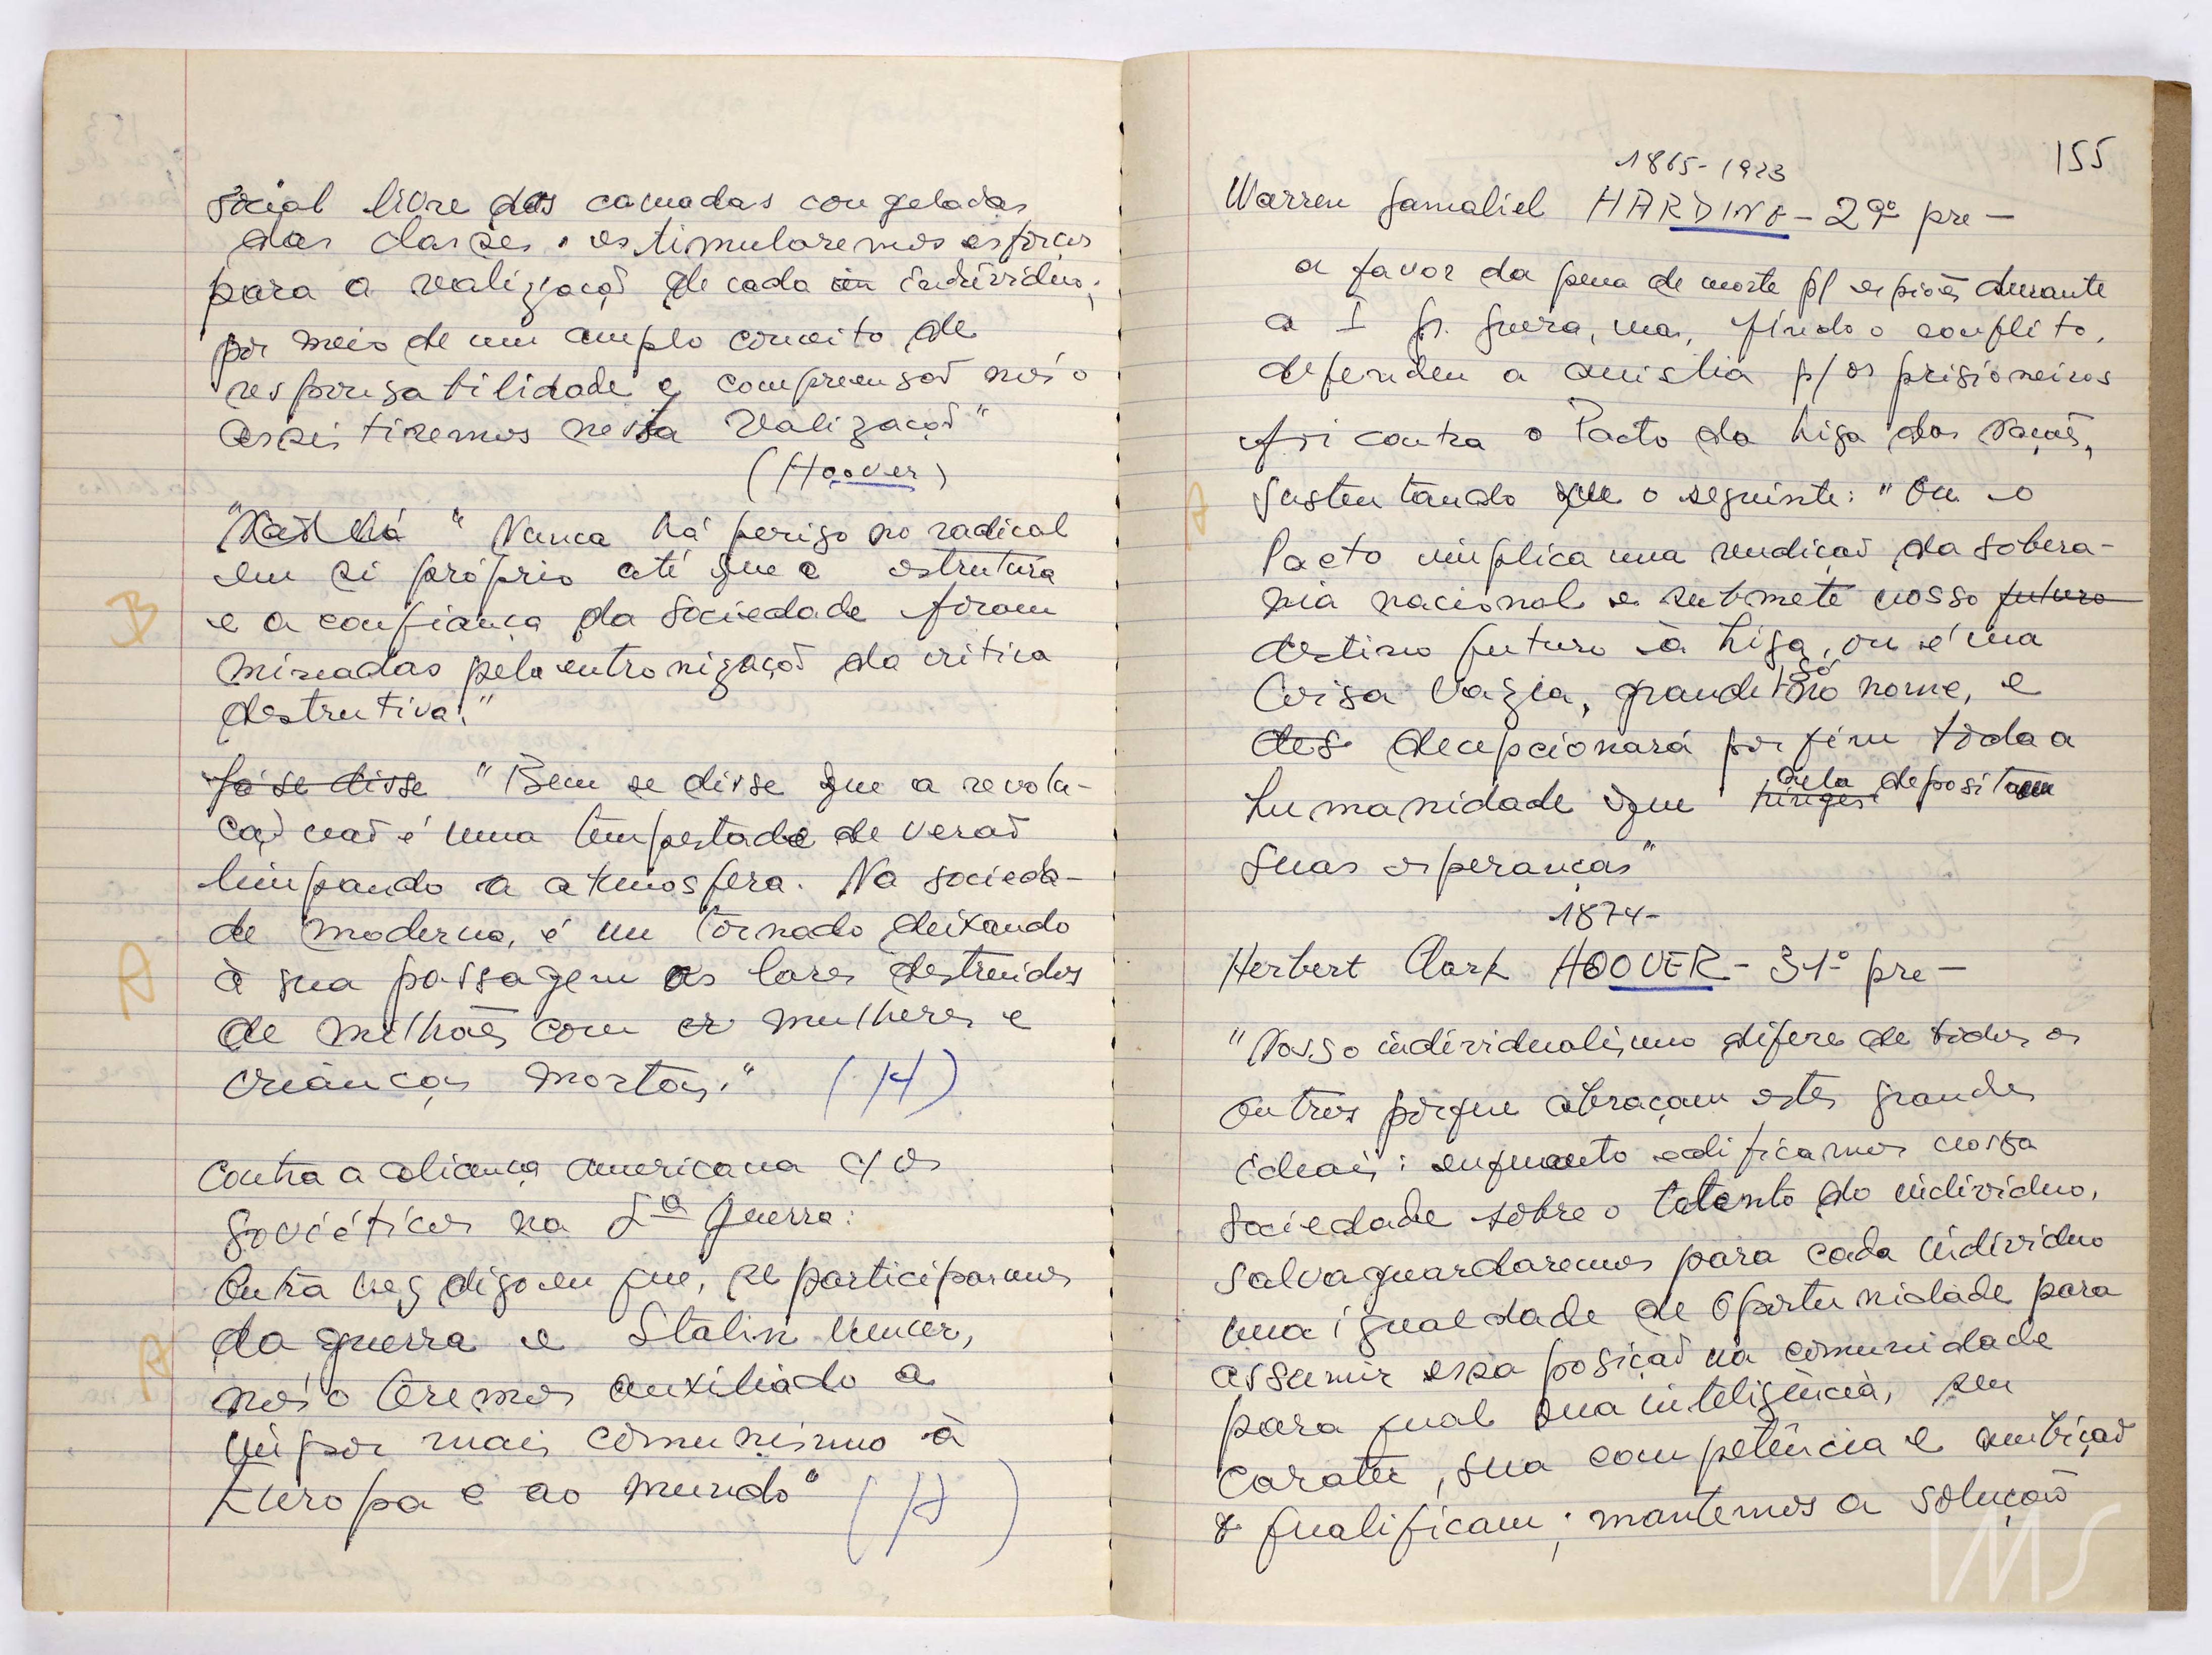 social livre das camadas congeladas
das classes. estimularemos esforços
para a realização de cada in indivíduo;
por meio de um amplo conceito de
responsabilidade e compreensão nós o
assistiremos nesta realização"
(Hoover)
"Não há " Nunca há perigo no radical
em si próprio até que a estrutura
e a confiança da sociedade foram
minadas pela entronização da crítica
destrutiva."
Já se disse "Bem se disse que a revolu-
ção não é uma tempestade de verão
limpando a atmosfera. Na socieda-
de moderna, é um tornado deixando
à sua passagem os lares destruidos
de milhões com as mulheres e
crianças mortas." (H)
Contra a aliança americana c/ os
soviéticos na 2ª guerra:
Outra vez digo eu que, se participarmos
da guerra e Stalin vencer,
nós o teremos auxiliado a
impor mais comunismo à
Europa e ao mundo" (H)
B
A
A
155
1865-1923
Warren Gamaliel HARDING - 29º pre-
a favor da pena de morte p/ espiões durante
a I gr. guerra, mas, findo o conflito,
defendeu a anistia p/ os prisioneiros
foi contra o Pacto da Liga das Nações,
sustentando que o seguinte: "Ou o
Pacto implica uma rendição da sobera-
nia nacional e submete nosso futuro
destino futuro à Liga, ou é uma
Coisa vazia, grande só no nome, e
des decepcionará por fim toda a
humanidade que nela depositam
suas esperanças"
A
1874-
Herbert Clark HOOVER - 31º pre-
"Nosso individualismo difere de todos os
outros porque abraçam estes grandes
ideais: enquanto edificamos nossa
sociedade sobre o talento do indivíduo,
salvaguardaremos para cada indivíduo
uma igualdade de oportunidade para
assumir essa posição na comunidade
para qual sua inteligência, seu
carater, sua competência e ambição
o qualificam; mantemos a solução
IMS